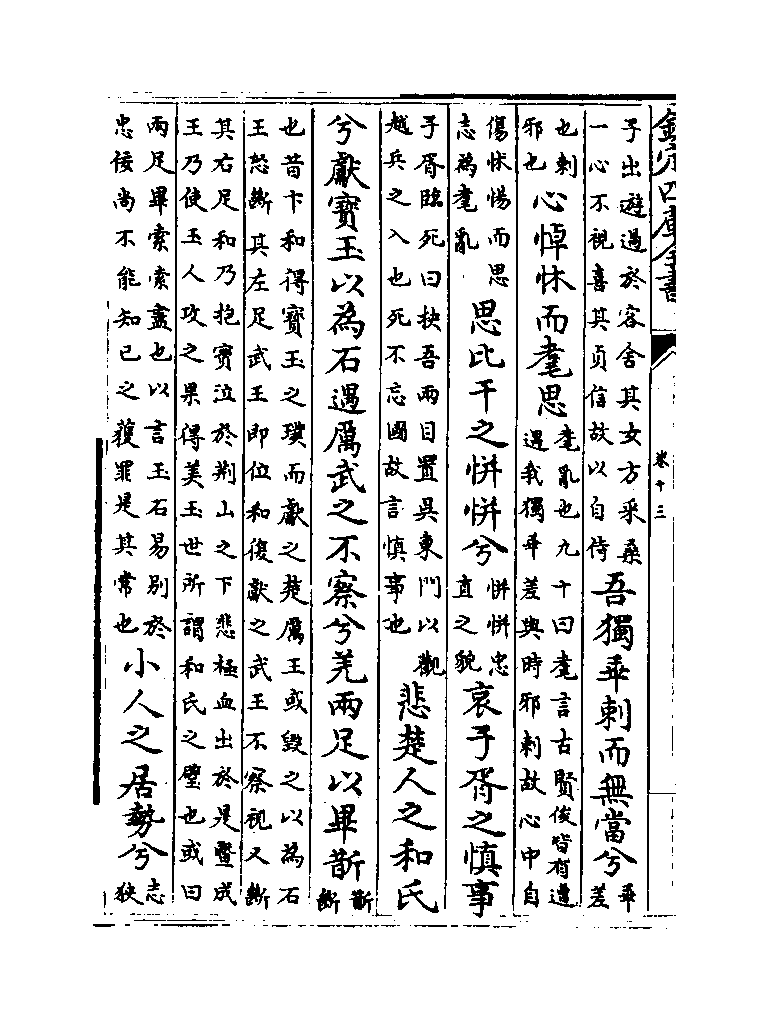 欽定四庫全書
卷十三
子出遊過於容舍其女方采桑一心不視喜其貞信故以自侍吾獨乖剌而無當兮乖差
也剌邪也心悼怵而耄思耄亂也九十曰耄言古賢俊皆有遭遇我獨乖差與時邪剌故心中自
傷怵惕而思志為耄亂思比干之恲恲兮恲恲忠直之貌哀子胥之慎事
子胥臨死曰抉吾兩目置吳東門以觀越兵之入也死不忘國故言慎事也悲楚人之和氏
兮獻寶玉以為石遇厲武之不察兮羌兩足以畢斮斮斷
也昔卞和得寶玉之璞而獻之楚厲王或毀之以為石王怒斷其左足武王即位和復獻之武王不察視又斷
其右足和乃抱寶泣於荆山之下悲極血出於是暨成王乃使玉人攻之果得美玉世所謂和氏之璧也或曰
兩足畢索索盡也以言玉石易别於忠佞尚不能知已之獲罪是其常也小人之居勢兮志狹